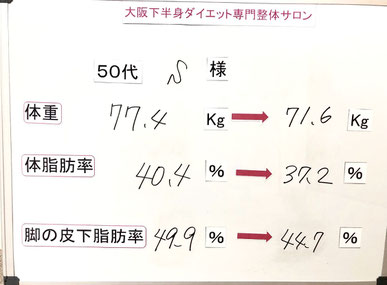 大阪下半身ダイエット専門整体サロン
50代 S 様
体重 77.4 Kg → 71.6 Kg
体脂肪率 40.4 % → 37.2 %
脚の皮下脂肪率 49.9 % → 44.7 %